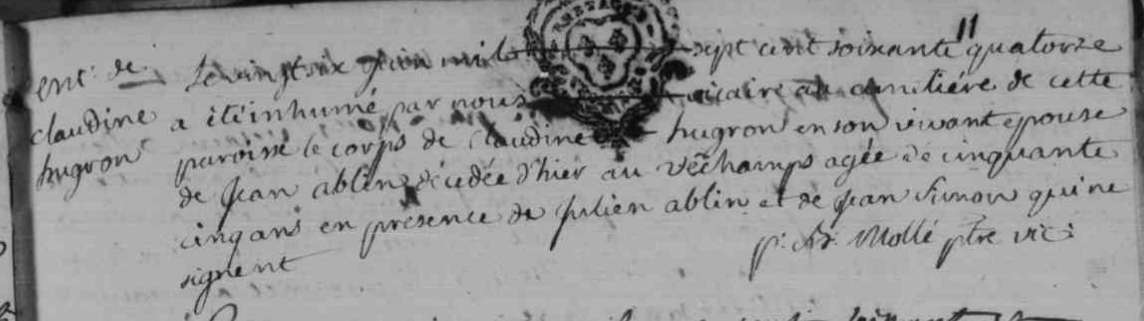 BRETAGNE
11
ent. de
claudine
hugron
Le vingt six juin mil sept cent soixante quatorze
a été inhumé par nous vicaire au cimitiére de cette
paroisse le corps de Claudine hugron en son vivant epouse
de Jean ablin décédée d'hier au agée de cinquante
cinq ans en presence de Julien ablin et de Jean Simon qui ne
signent
Mollé ptre vic: